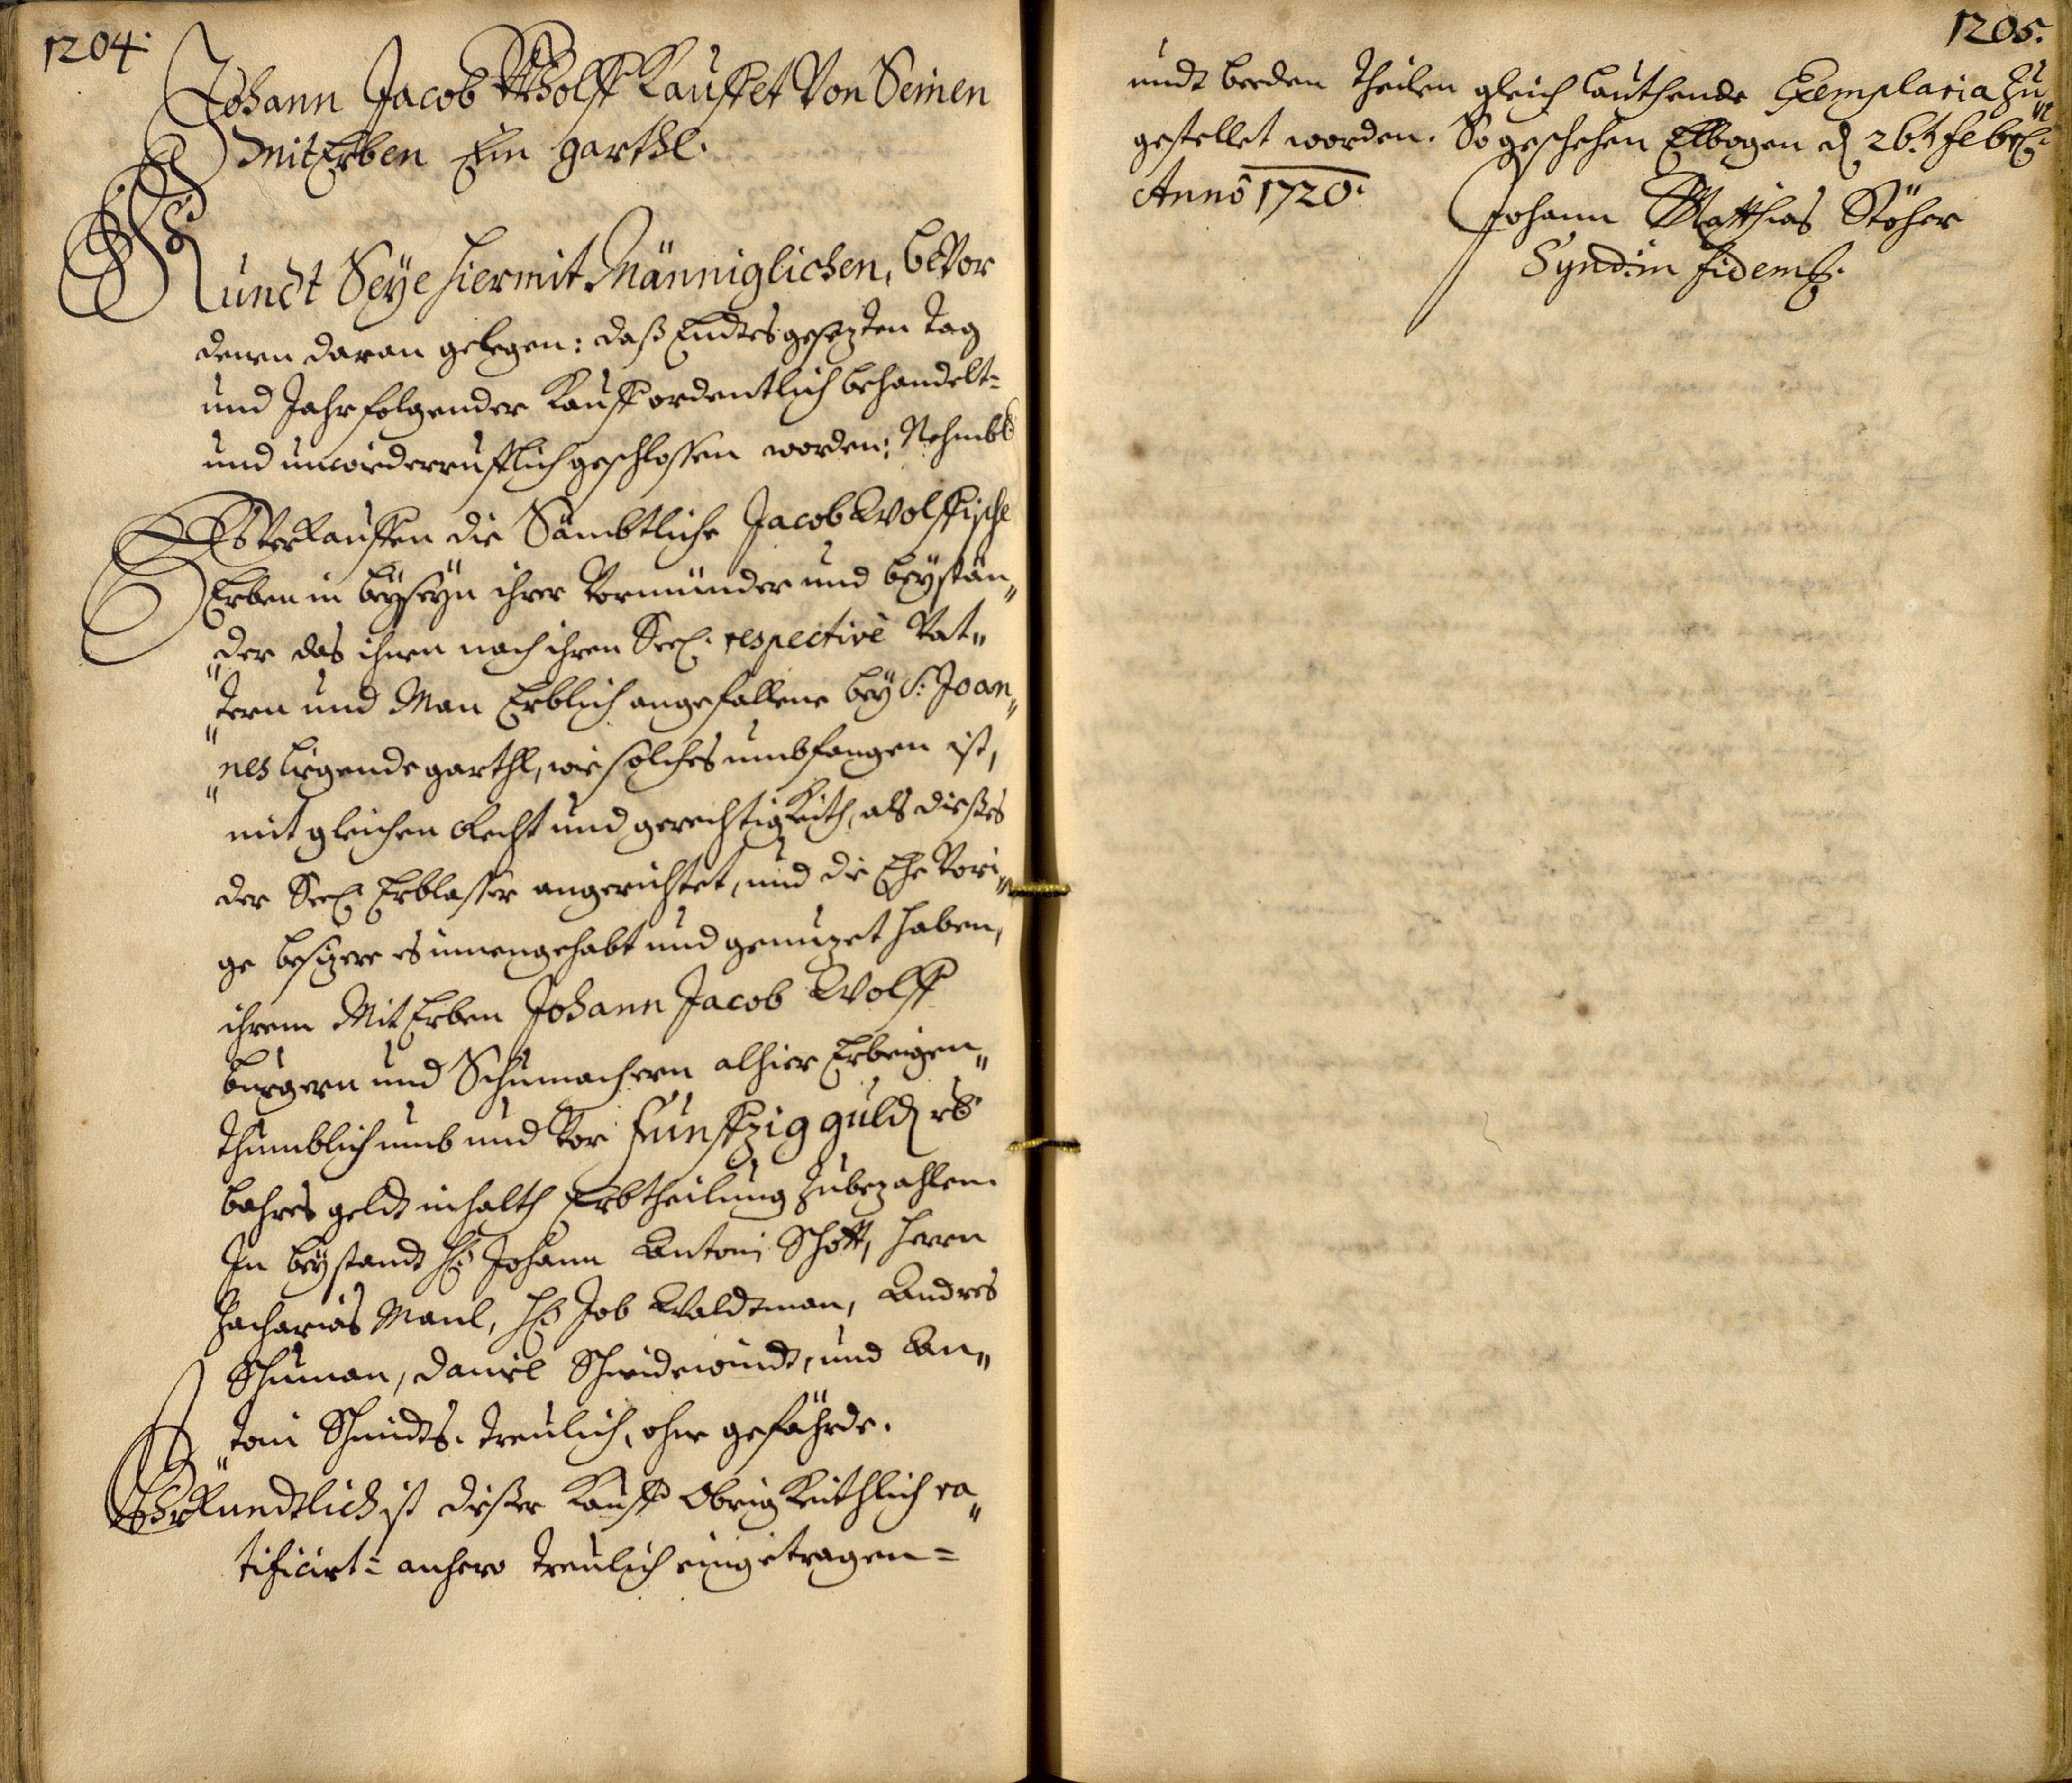 1204.
Johann Jacob Wolff Kauffet Von Seinen
MitErben Ein garthl.
Kundt Seÿe hiermit Männiglichen, beVor
denen daran gelegen: daß Endtsgesezten tag
und Jahr folgender Kauff ordentlich behandelt-
und unwiederrufflich geschlossen worden; Nehmbl:
Es Verkauffen die Sämbtliche Jacob Wolffische
Erben in beÿseÿn ihrer Vormünder und beÿstän„
„der das ihnen nach ihren Seel: respectivè Vat„
„tern und Man Erblich angefallene beÿ S: Joan„
„nes liegende garthl, wie solches umbfangen ist,
mit gleichen Recht und gerechtigkeith, als dießes
der Seel: Erblasser angerichtet, und die Ehe Vori„
ge besizere es innengehabt und genuzet haben,
ihrem MitErben Johann Jacob Wolff
burgern und Schumachern alhier Erbeigen„
thumblich umb und Vor funffzig guld rh
bahres geldt inhalth Erbtheilung zubezahlen.
In beÿstandt H: Johann Antoni Schött, herrn
Zacharias Manl, H: Job Waldtman, Andres
Schuman, Daniel Schneidewindt, und An„
„toni Schmidts. treulich, ohne gefährde.
Uhrkundtlich ist dießer Kauff Obrigkeithlich ra„
tificirt- anhero treulich eingetragen-
1205.
undt beeden theilen gleich lauthende Exemplaria zu„
gestellet worden. So geschehen Elbogen d 26.t feb:
Anno 1720.
Johann Matthias Stöhr
Synd: in fidem.